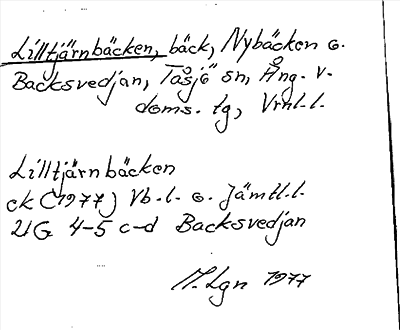 Lilltjärnbäcken, bäck, Nybäcken o.
Backsvedjan, Tåsjö sn, Ång. v.
doms. lg, Vrnl.l.
Lilltjärnbäcken
ek (1977) Vb.l. o. Jämtl.l.
21G 4-5 c-d Backsvedjan
M.Lgn 1977